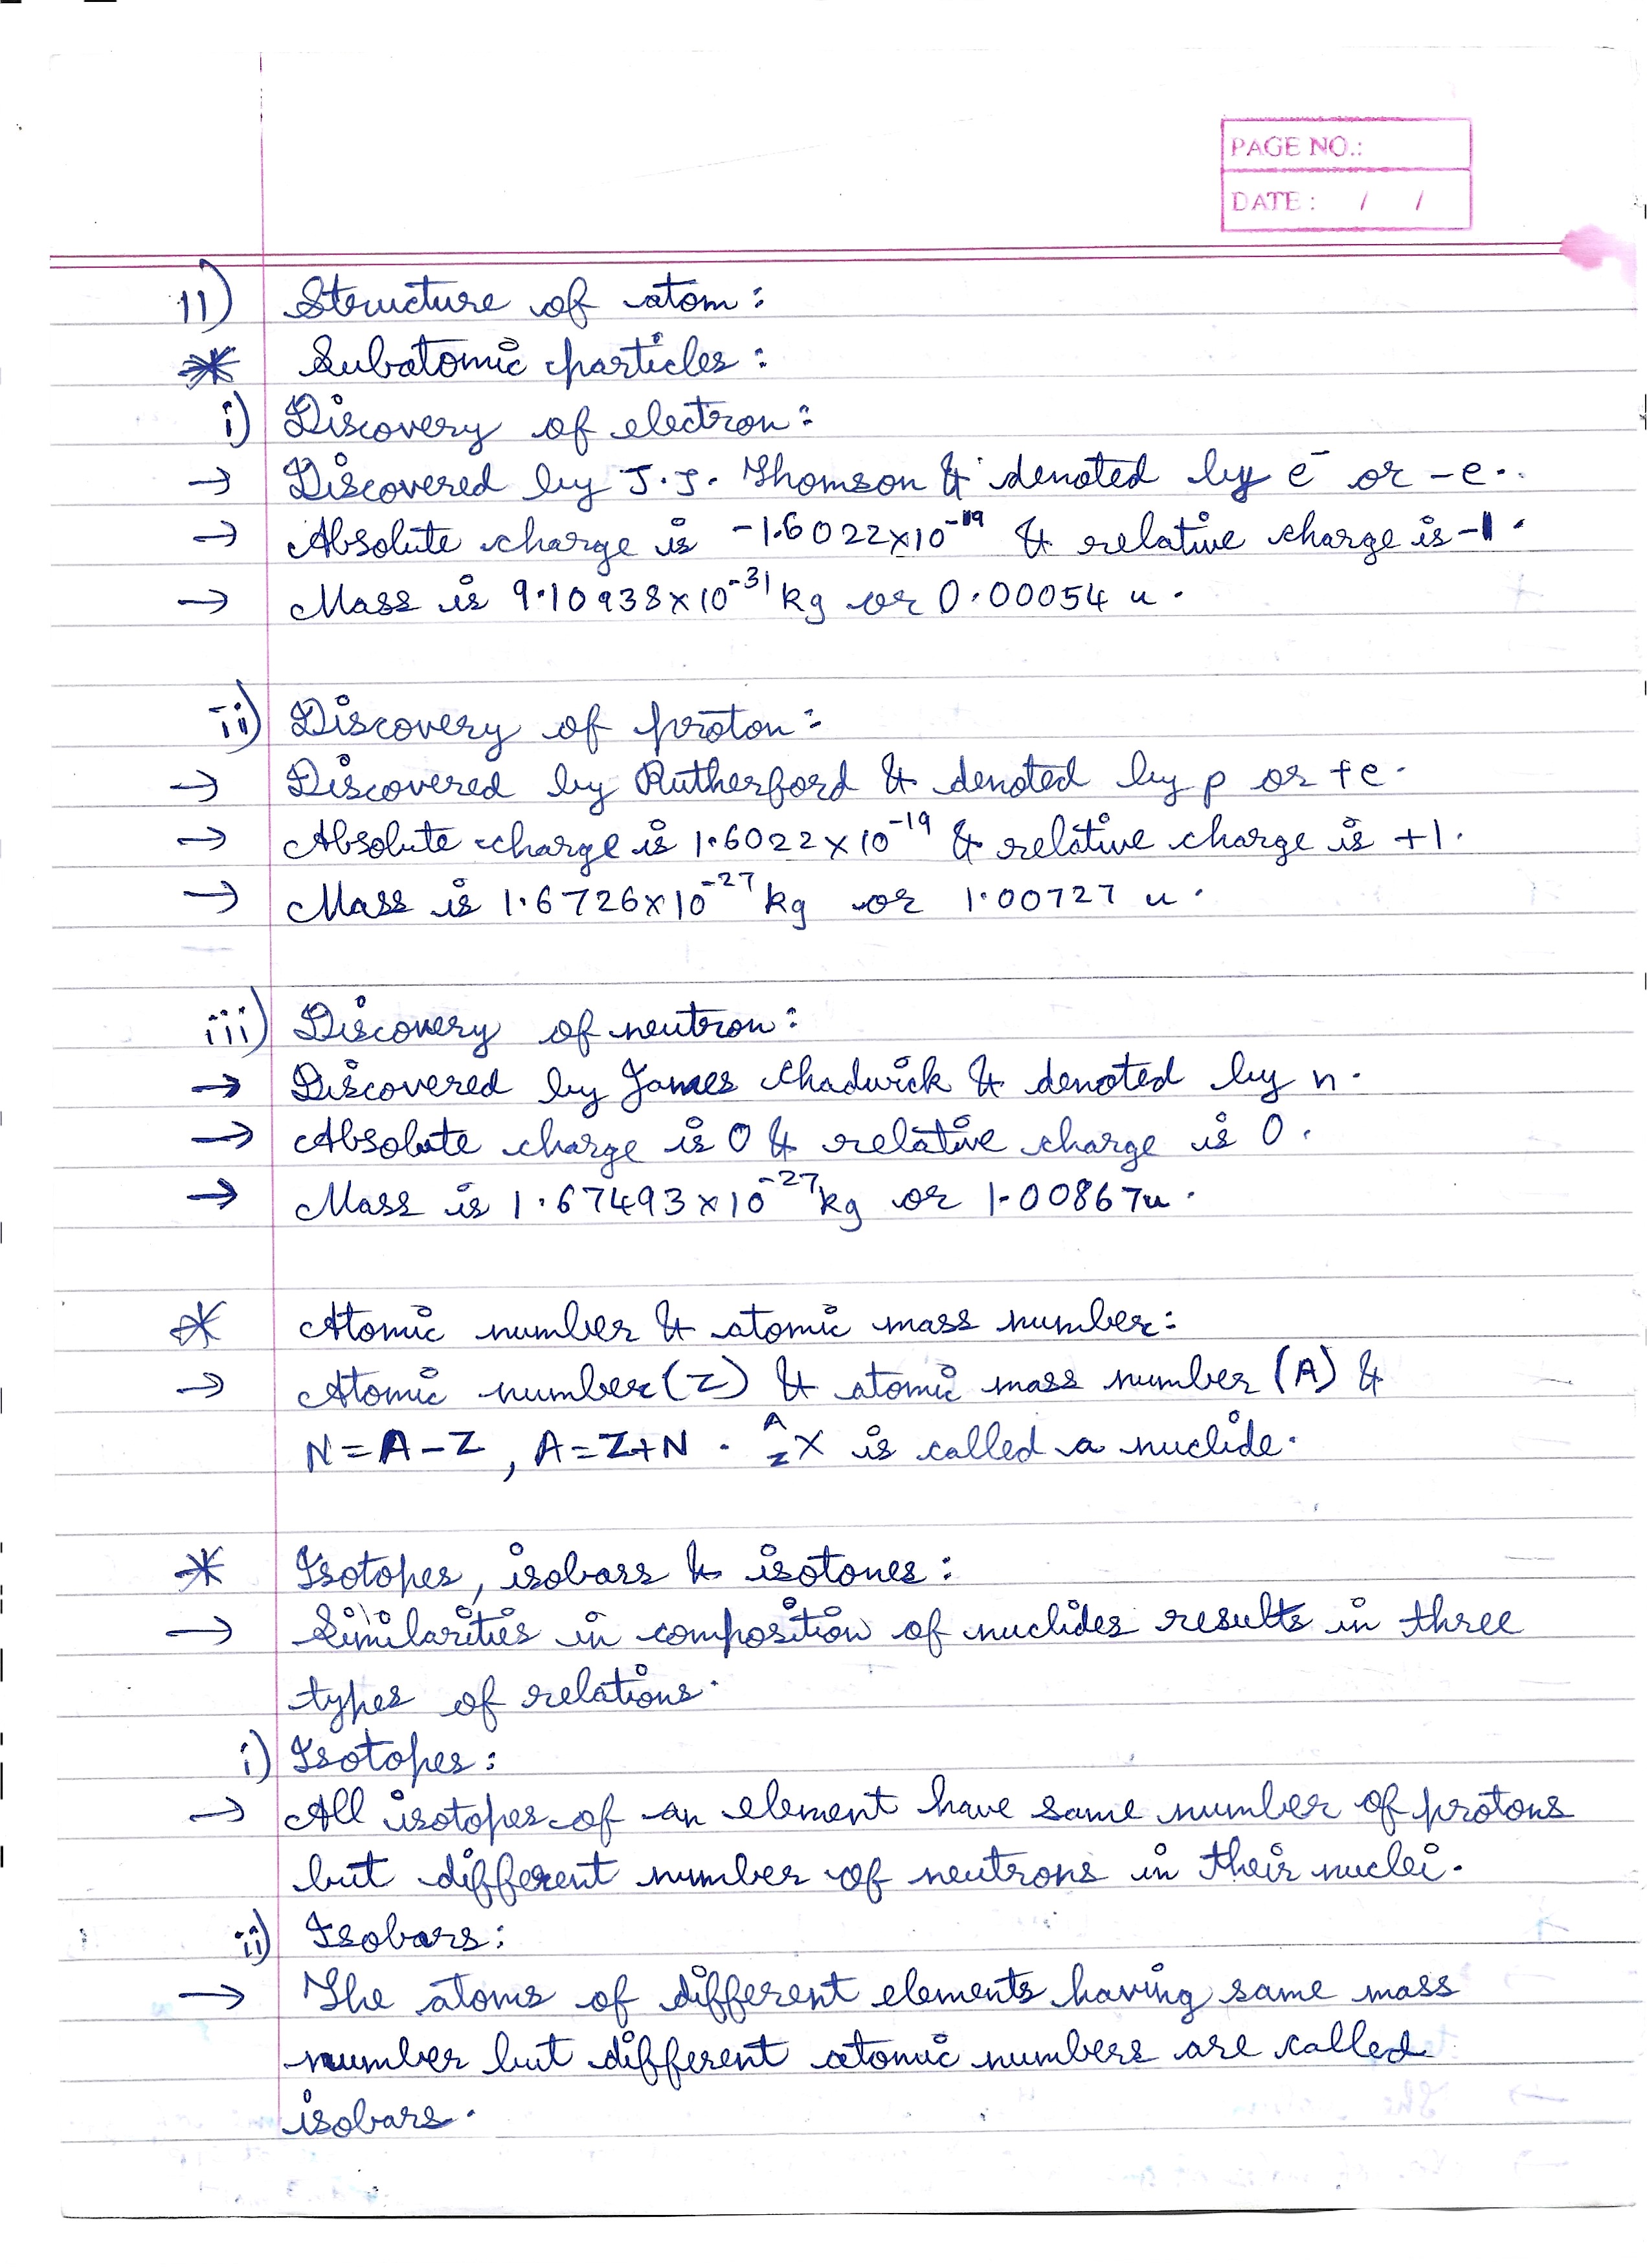 PAGE NO.:
DATE: / /
11) Structure of atom:
* Subatomic particles:
i) Discovery of electron:
→ Discovered by J.J. Thomson & denoted by e⁻ or -e.
→ Absolute charge is -1.6022×10⁻¹⁹ & relative charge is -1.
→ Mass is 9.10938×10⁻³¹ kg or 0.00054 u.
ii) Discovery of proton:
→ Discovered by Rutherford & denoted by p or +e.
→ Absolute charge is 1.6022×10⁻¹⁹ & relative charge is +1.
→ Mass is 1.6726×10⁻²⁷ kg or 1.00727 u.
iii) Discovery of neutron:
→ Discovered by James Chadwick & denoted by n.
→ Absolute charge is 0 & relative charge is 0.
→ Mass is 1.67493×10⁻²⁷ kg or 1.00867u.
* Atomic number & atomic mass number:
→ Atomic number(Z) & atomic mass number (A) &
N=A-Z, A=Z+N. ᴬ_ZX is called a nuclide.
* Isotopes, isobars & isotones:
→ Similarities in composition of nuclides results in three
types of relations.
i) Isotopes:
→ All isotopes of an element have same number of protons
but different number of neutrons in their nuclei.
ii) Isobars:
→ The atoms of different elements having same mass
number but different atomic numbers are called
isobars.